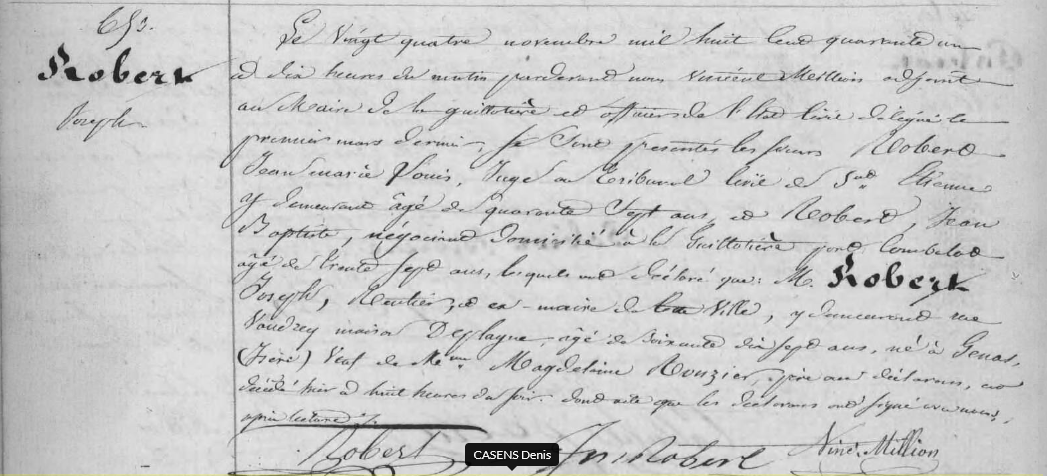 653.
Robert
Joseph
Le vingt quatre novembre mil huit cent quarante un
et dix heures du matin pardevant nous Vincent Million adjoint
au Maire de la guillotière et officier de l'Etat Civil délégué le
premier mars dernier, se sont présentés les sieurs Robert
Jean marie Louis, Juge au Tribunal Civil de St Etienne
y demeurant âgé de quarante sept ans, et Robert, Jean
Baptiste, négociant domicilié à la Guillotière
âgé de trente sept ans, lesquels ont déclaré que: M. Robert
Joseph, Rentier, et ex-maire de la Ville, y demeurant rue
Vaudrey maison Desplagne, âgé de soixante dix sept ans, né à Genas,
(Isère) Veuf de Me Magdeleine Rouzier, père au déclarant, est
décédé hier à huit heures du soir. dont acte que les déclarans ont signé avec nous,
après lecture
Robert Jn Robert Vinct Million
CASENS Denis